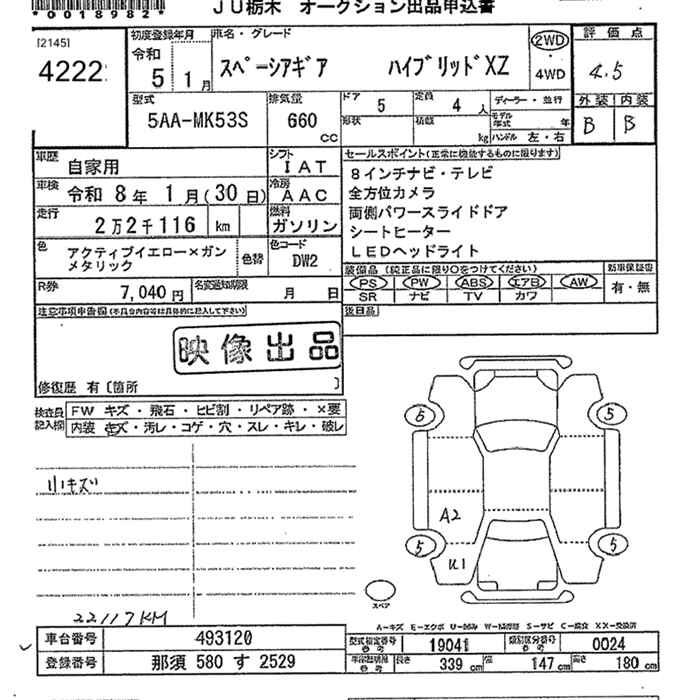 *0018982*
JU栃木 オークション出品申込書
[2145]
4222
初度登録年月
令和
5 1月
車名・グレード
スペーシアギア ハイブリッドXZ
2WD
・
4WD
評価点
4.5
外装 内装
B B
型式
5AA-MK53S
排気量
660
cc
ドア 5
定員 4人
ディーラー・並行
形状
積載
kg
モデル年式 年
ハンドル 左・右
車歴
自家用
シフト
IAT
車検 令和 8年 1月(30日)
冷房
AAC
走行
2万2千116 km
燃料
ガソリン
色
アクティブイエロー×ガン
メタリック
色替
色コード
DW2
R券 7,040円
名変通知期限 月 日
セールスポイント(正常に機能するものに限ります)
8インチナビ・テレビ
全方位カメラ
両側パワースライドドア
シートヒーター
LEDヘッドライト
装備品(純正品に限り○をつけてください)
PS PW ABS エアB AW
SR ナビ TV カワ
新車保証書
有・無
後日品
注意事項申告欄(不具合内容等は具体的に記入して下さい)
映像出品
修復歴 有〔箇所 〕
検査員
記入欄
FW キズ・飛石・ヒビ割・リペア跡・×要
内装 キズ・汚レ・コゲ・穴・スレ・キレ・破レ
小キズ
22117KM
5 5
A2
5 5
U1
スペア
A-キズ E-エクボ U-凹み W-補修跡 S-サビ C-腐食 XX-交換済
車台番号 493120
登録番号 那須 580 す 2529
型式指定番号 19041
類別区分番号 0024
長さ 339cm 幅 147cm 高さ 180cm